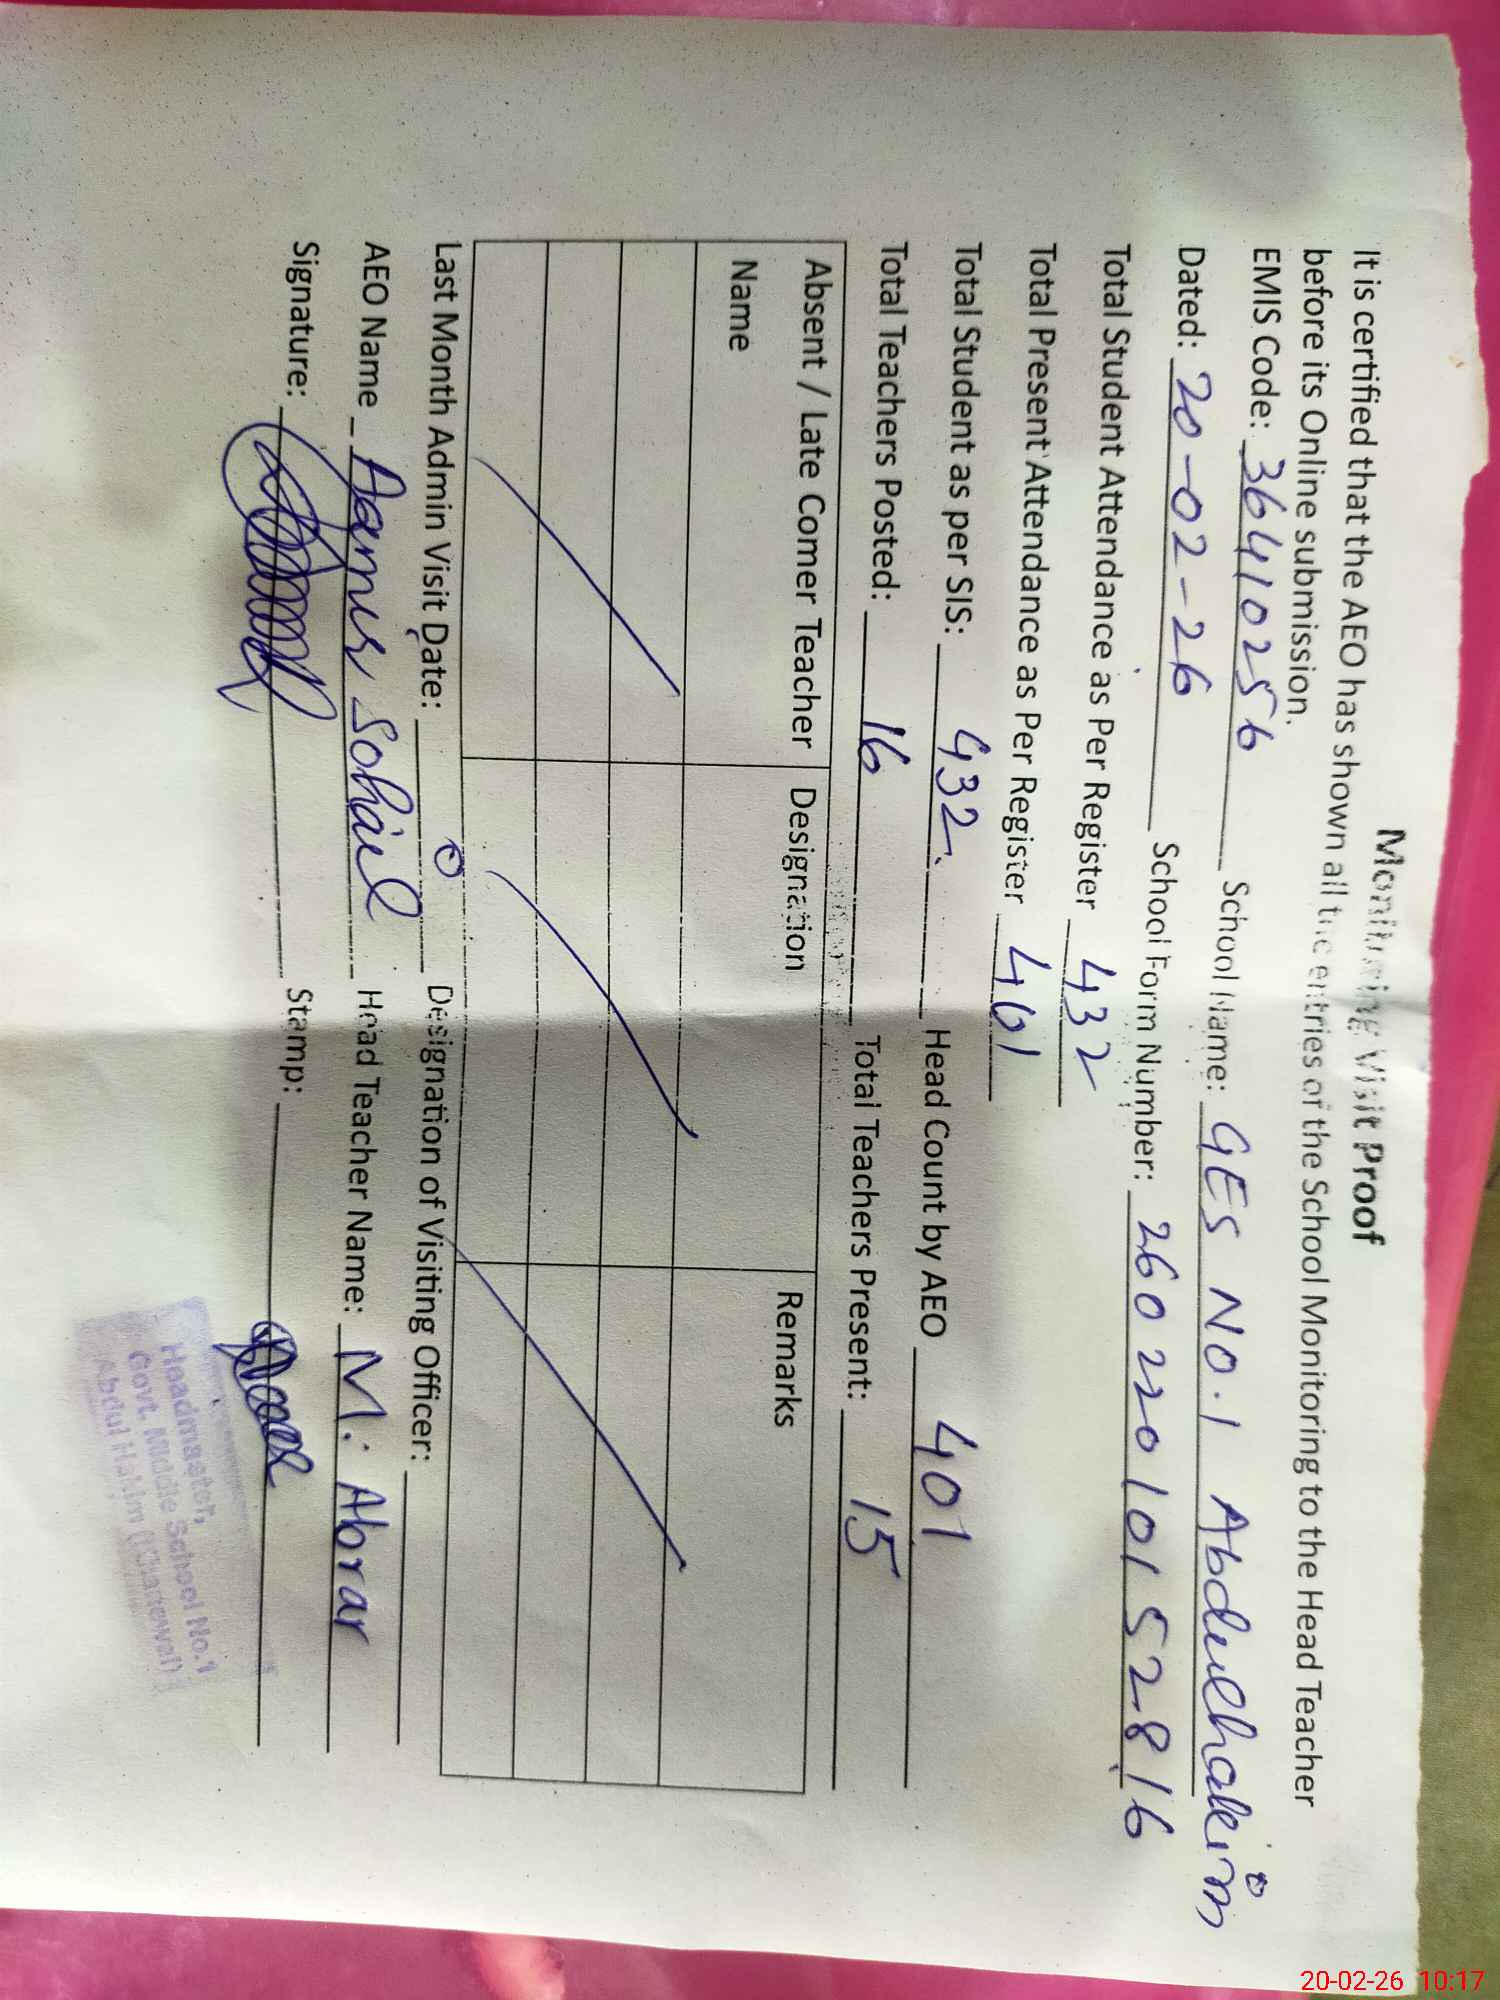 Monitoring Visit Proof
It is certified that the AEO has shown all the entries of the School Monitoring to the Head Teacher
before its Online submission.
EMIS Code: 36410256 School Name: GES No.1 Abdulhakim
Dated: 20-02-26 School Form Number: 26022010152816
Total Student Attendance as Per Register 432
Total Present Attendance as Per Register 401
Total Student as per SIS: 432 Head Count by AEO 401
Total Teachers Posted: 16 Total Teachers Present: 15
Absent / Late Comer Teacher Name Designation Remarks
Last Month Admin Visit Date: Designation of Visiting Officer:
AEO Name Aamir Sohail Head Teacher Name: M. Abrar
Signature: Stamp:
Headmaster,
Govt. Middle School No.1
Abdul Hakim (Khanewal)
20-02-26 10:17